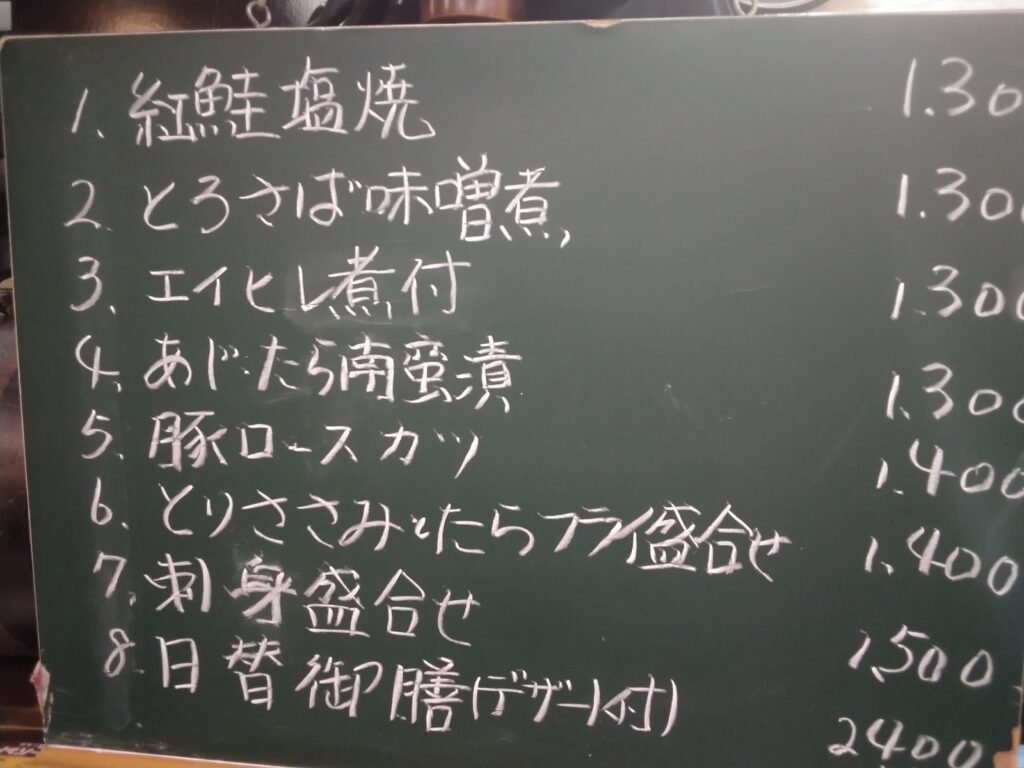 1. 紅鮭塩焼 1.300
2. とろさば味噌煮 1.300
3. エイヒレ煮付 1.300
4. あじ・たら南蛮漬 1.300
5. 豚ロースカツ 1.400
6. とりささみとたらフライ盛合せ 1.400
7. 刺身盛合せ 1,500
8. 日替御膳(デザート付) 2400